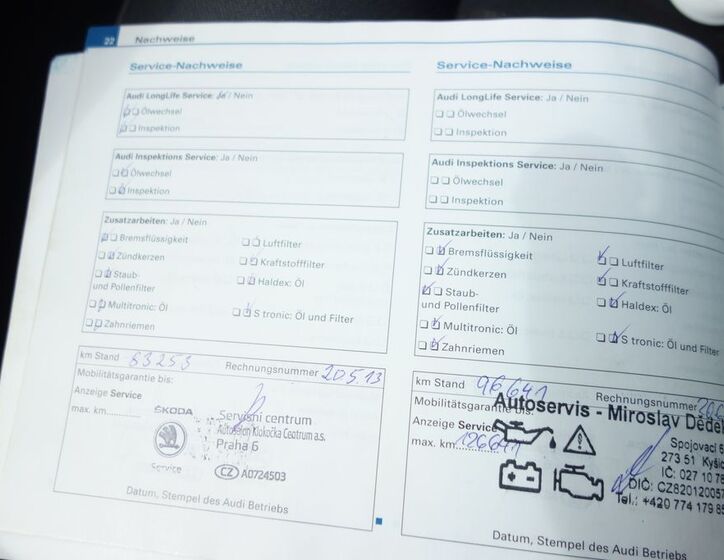 22 Nachweise
Service-Nachweise
Audi LongLife Service: Ja / Nein
Ölwechsel
Inspektion
Audi Inspektions Service: Ja / Nein
Ölwechsel
Inspektion
Zusatzarbeiten: Ja / Nein
Bremsflüssigkeit
Luftfilter
Zündkerzen
Kraftstofffilter
Staub-
und Pollenfilter
Haldex: Öl
Multitronic: Öl
S tronic: Öl und Filter
Zahnriemen
km Stand 83253 Rechnungsnummer 20.5.13
Mobilitätsgarantie bis:
Anzeige Service
max. km
ŠKODA
Service
Servisní centrum
Autosalon Klokočka Centrum a.s.
Praha 6
CZ A0724503
Datum, Stempel des Audi Betriebs
Service-Nachweise
Audi LongLife Service: Ja / Nein
Ölwechsel
Inspektion
Audi Inspektions Service: Ja / Nein
Ölwechsel
Inspektion
Zusatzarbeiten: Ja / Nein
Bremsflüssigkeit
Luftfilter
Zündkerzen
Kraftstofffilter
Staub-
und Pollenfilter
Haldex: Öl
Multitronic: Öl
S tronic: Öl und Filter
Zahnriemen
km Stand 96641 Rechnungsnummer
Mobilitätsgarantie bis:
Autoservis - Miroslav Děde
Anzeige Service
max. km 126641
Spojovací
273 51 Kyšic
IČ: 027 10 78
DIČ: CZ820120057
Tel.: +420 774 179 85
Datum, Stempel des Audi Betriebs